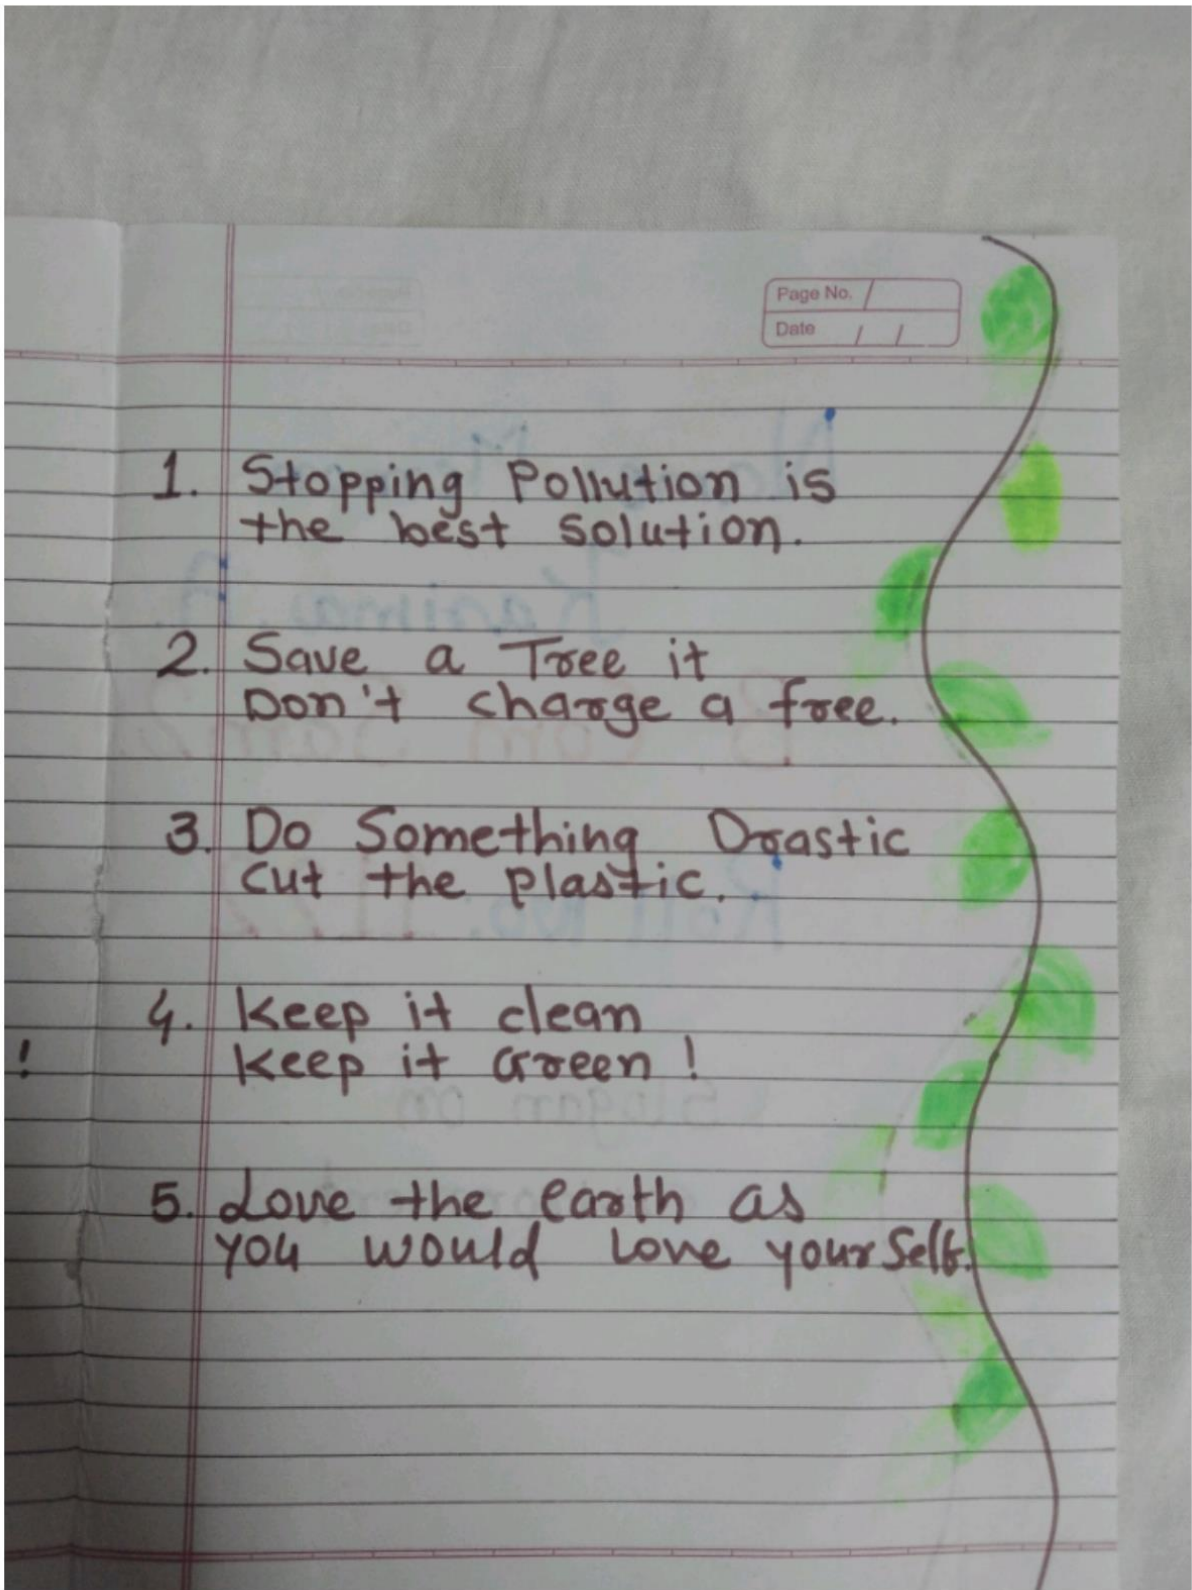 Page No.
Date / /
1. Stopping Pollution is
the best solution.
2. Save a Tree it
Don't charge a free.
3. Do Something Drastic
cut the plastic.
4. Keep it clean
!
keep it Green !
5. Love the earth as
you would love yourself.